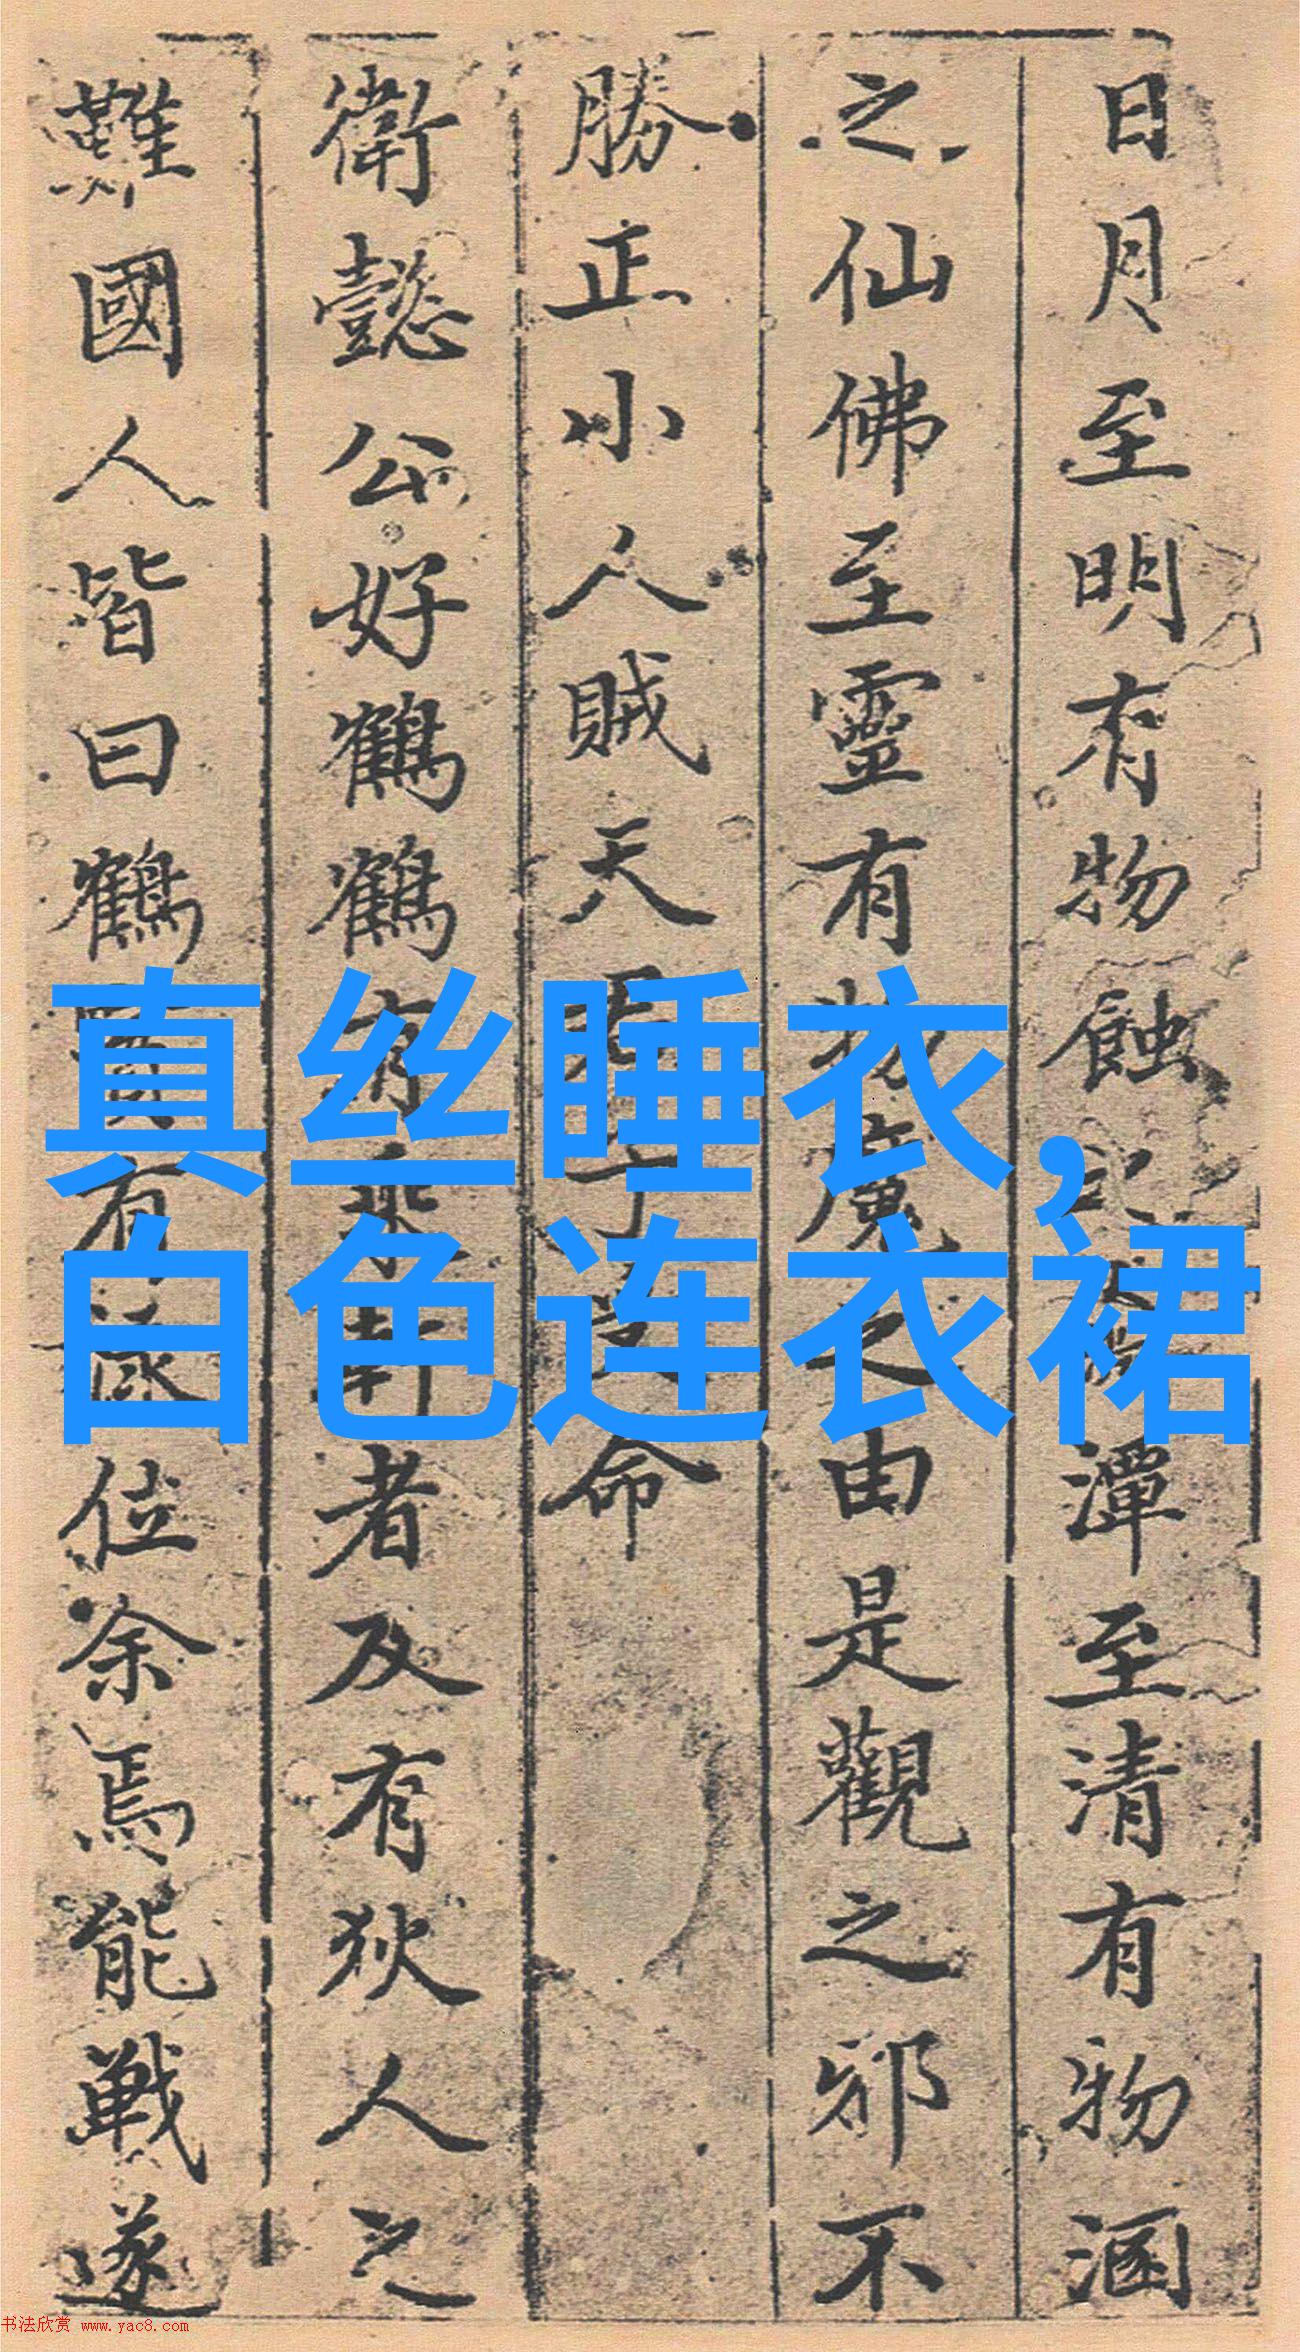 日月至明有物蝕潭至清有物涵
之仙佛至靈有物魔之由是觀之邪不
勝正小人賊天命
衛懿公好鶴鶴有乘軒者及有狄人之
難國人皆曰鶴實有祿位余焉能戰遂
真丝睡衣,
白色连衣裙
书法欣赏 www.yac8.com